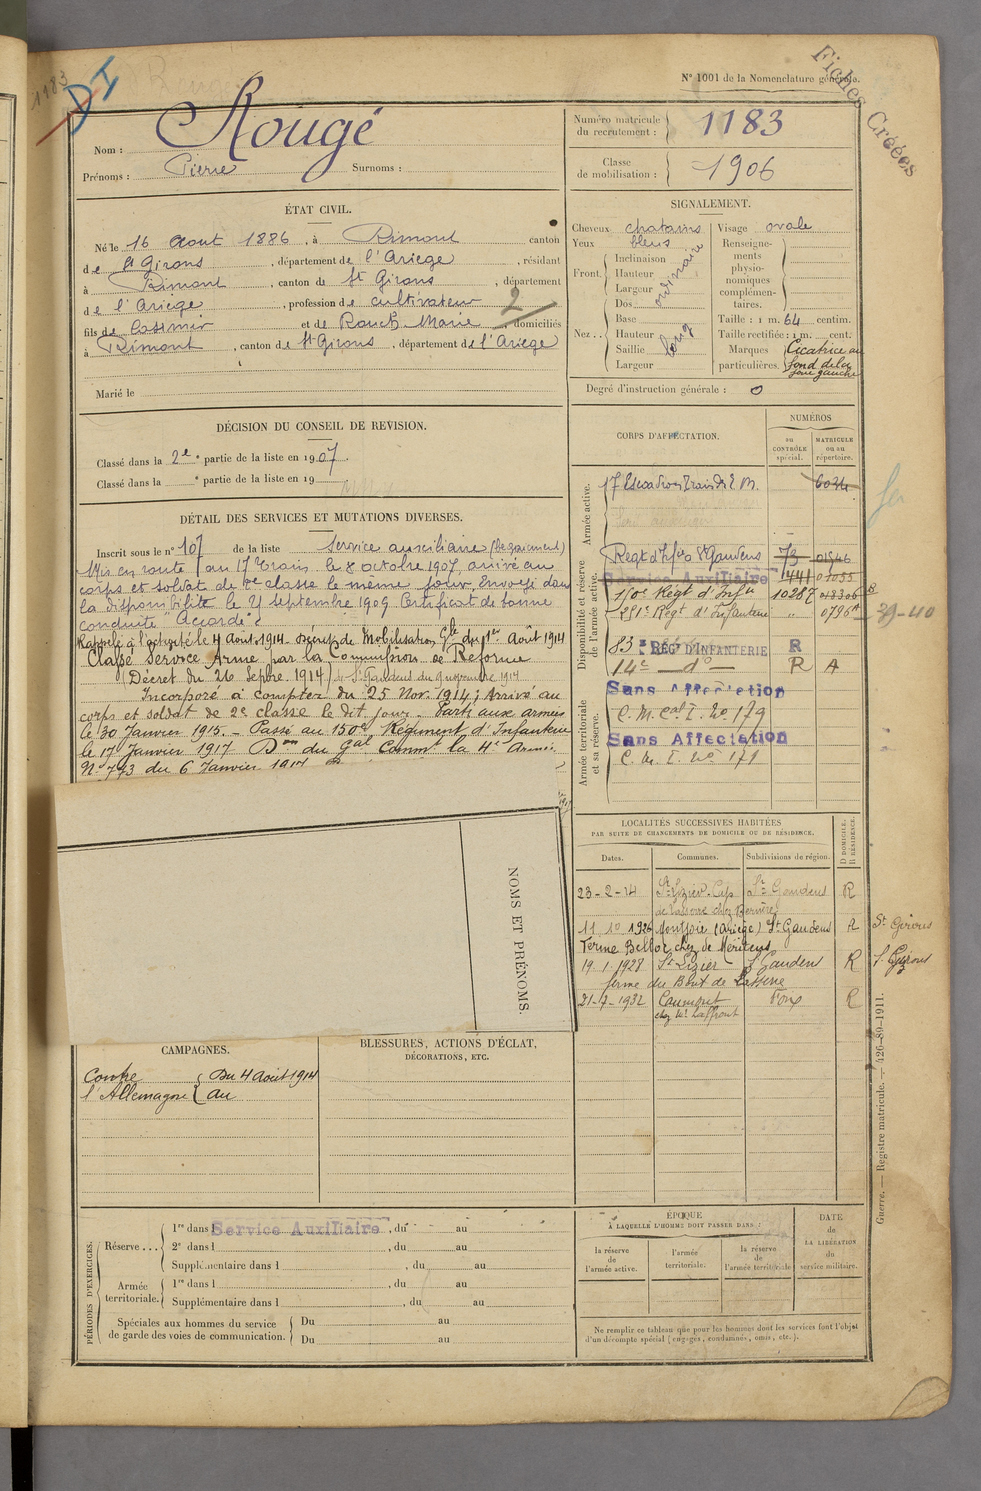 1183
D I
Fiches Créées
N° 1001 de la Nomenclature générale.
Nom : Rougé
Prénoms : Pierre Surnoms :
Numéro matricule du recrutement : 1183
Classe de mobilisation : 1906
ÉTAT CIVIL.
Né le 16 Aout 1886, à Rimont canton
de St Girons, département de l'Ariège, résidant
à Rimont, canton de St Girons, département
de l'Ariège, profession de cultivateur
fils de Casimir et de Rouch Marie domiciliés
à Rimont, canton de St Girons, département de l'Ariège
2
Marié le
SIGNALEMENT.
Cheveux chatains
Yeux bleus
Front. Inclinaison
Hauteur
Largeur
ordinaire
Nez... Dos
Base
Hauteur
Saillie
Largeur
long
Visage ovale
Renseignements physionomiques complémentaires.
Taille : 1 m. 64 centim.
Taille rectifiée : 1 m. cent.
Marques particulières. Cicatrice au
fond de la
joue gauche
Degré d'instruction générale : 0
DÉCISION DU CONSEIL DE REVISION.
Classé dans la 2e partie de la liste en 1907.
Classé dans la e partie de la liste en 19
DÉTAIL DES SERVICES ET MUTATIONS DIVERSES.
Inscrit sous le n° 107 de la liste Service auxiliaire
Mis en route au 17e Train le 8 octobre 1907, arrivé au
corps et soldat de 2e classe le même jour. Envoyé dans
la disponibilité le 21 septembre 1909 Certificat de bonne
conduite "Accordé".
Rappelé à l'activité le 4 Août 1914 - Décret de Mobilisation Gle du 1er Août 1914
Classé Service Armé par la Commission de Réforme
(Décret du 26 Septbre. 1914) de St Gaudens du 9 novembre 1914
Incorporé à compter du 25 Nov. 1914; Arrivé au
corps et soldat de 2e classe le dit jour. Parti aux armées
le 30 Janvier 1915. - Passé au 150e Régiment d'Infanterie
le 17 Janvier 1917 Don du Gal Commt la 4e Armée
N° 793 du 6 Janvier 1917
NOMS ET PRÉNOMS.
CORPS D'AFFECTATION.
NUMÉROS
au CONTRÔLE spécial.
MATRICULE ou au répertoire.
Armée active.
17 Escadron Train des E. M. 6024
Disponibilité et réserve de l'armée active.
Regt d'Infie St Gaudens 73 01546
Service Auxiliaire 1441 01055
150e Regt d'Infie 10287 018306 B
251e Regt d'Infanterie " 0796 A
39-40
83e REGt D'INFANTERIE R
14e do R A
Armée territoriale et sa réserve.
Sans Affectation
C. M. cal I. No 179
Sans Affectation
C. M. I. No 179
LOCALITÉS SUCCESSIVES HABITÉES
PAR SUITE DE CHANGEMENTS DE DOMICILE OU DE RÉSIDENCE.
Dates. Communes. Subdivisions de région. D DOMICILE. R RÉSIDENCE.
23-2-14 St Lizier St Gaudens R
11 10 1926 Montjoie (Ariège) St Gaudens R St Girons
Ferme Bellot chez de Meritens
19.1.1928 St Lizier St Gaudens R St Girons
ferme du Bout de Lasserre
21-7-1932 Caumont Foix R
chez Mr Laffont
CAMPAGNES.
Contre l'Allemagne { Du 4 Août 1914
au
BLESSURES, ACTIONS D'ÉCLAT,
DÉCORATIONS, ETC.
PÉRIODES D'EXERCICES.
Réserve... 1re dans l Service Auxiliaire, du au
2e dans l, du au
Supplémentaire dans l, du au
Armée territoriale. 1re dans l, du au
Supplémentaire dans l, du au
Spéciales aux hommes du service de garde des voies de communication. Du au
Du au
ÉPOQUE
À LAQUELLE L'HOMME DOIT PASSER DANS :
la réserve de l'armée active.
l'armée territoriale.
la réserve de l'armée territoriale
DATE de LA LIBÉRATION du service militaire.
Ne remplir ce tableau que pour les hommes dont les services font l'objet
d'un décompte spécial (engagés, condamnés, omis, etc.).
Guerre. — Registre matricule. — 426-89-1911.